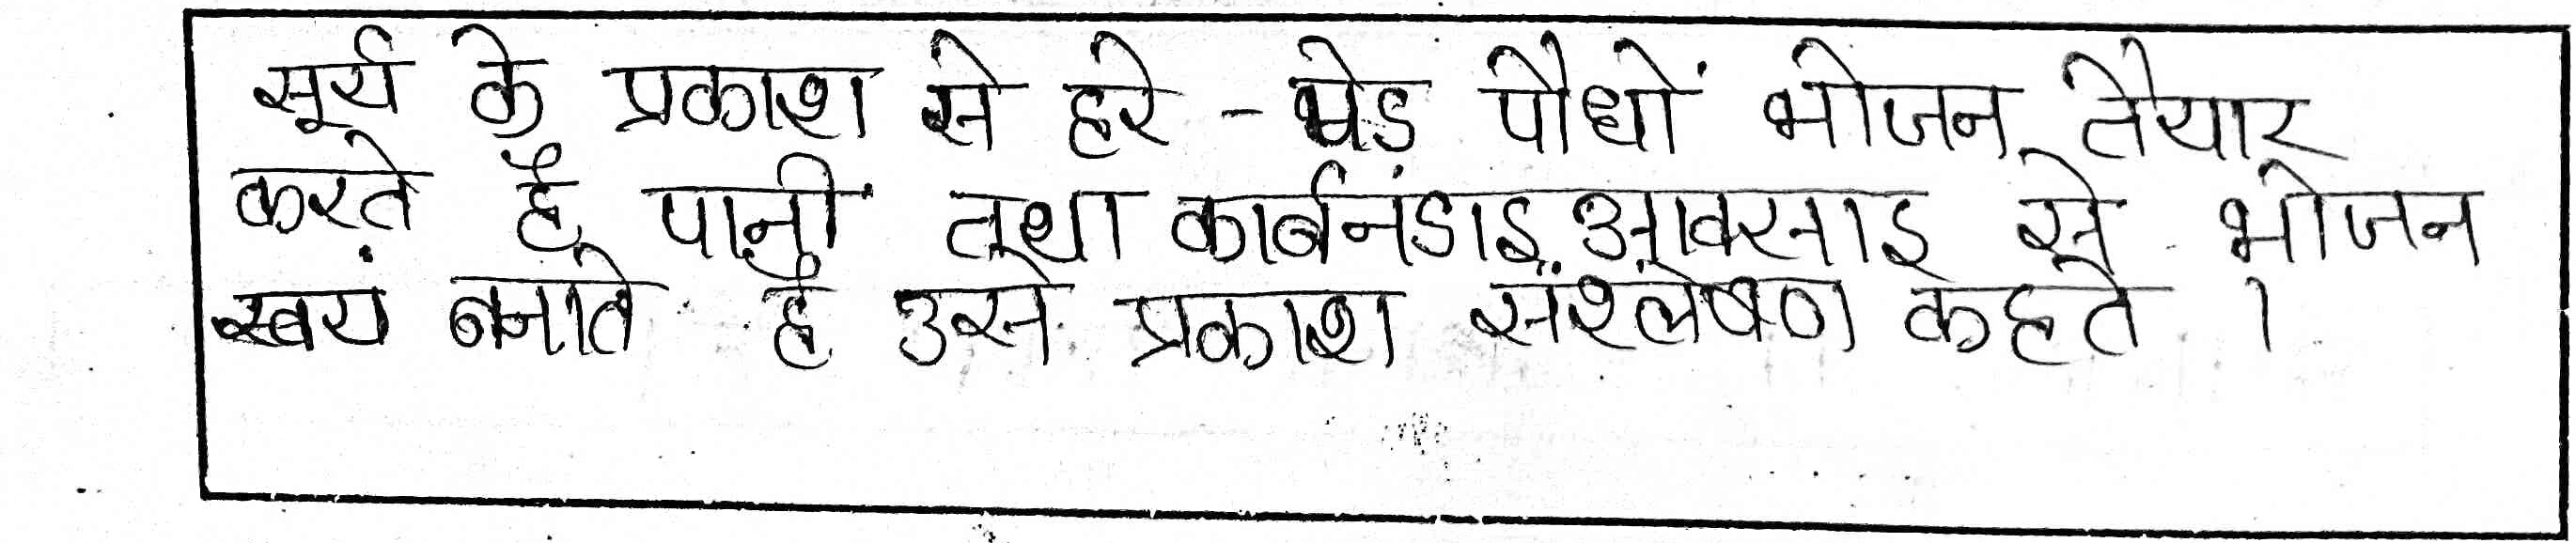 सूर्य के प्रकाश से हरे - पेड पौधों भोजन तैयार
करते है पानी तथा कार्बनडाइआक्साइ से भोजन
स्वयं बनाते है उसे प्रकाश संश्लेषण कहते ।